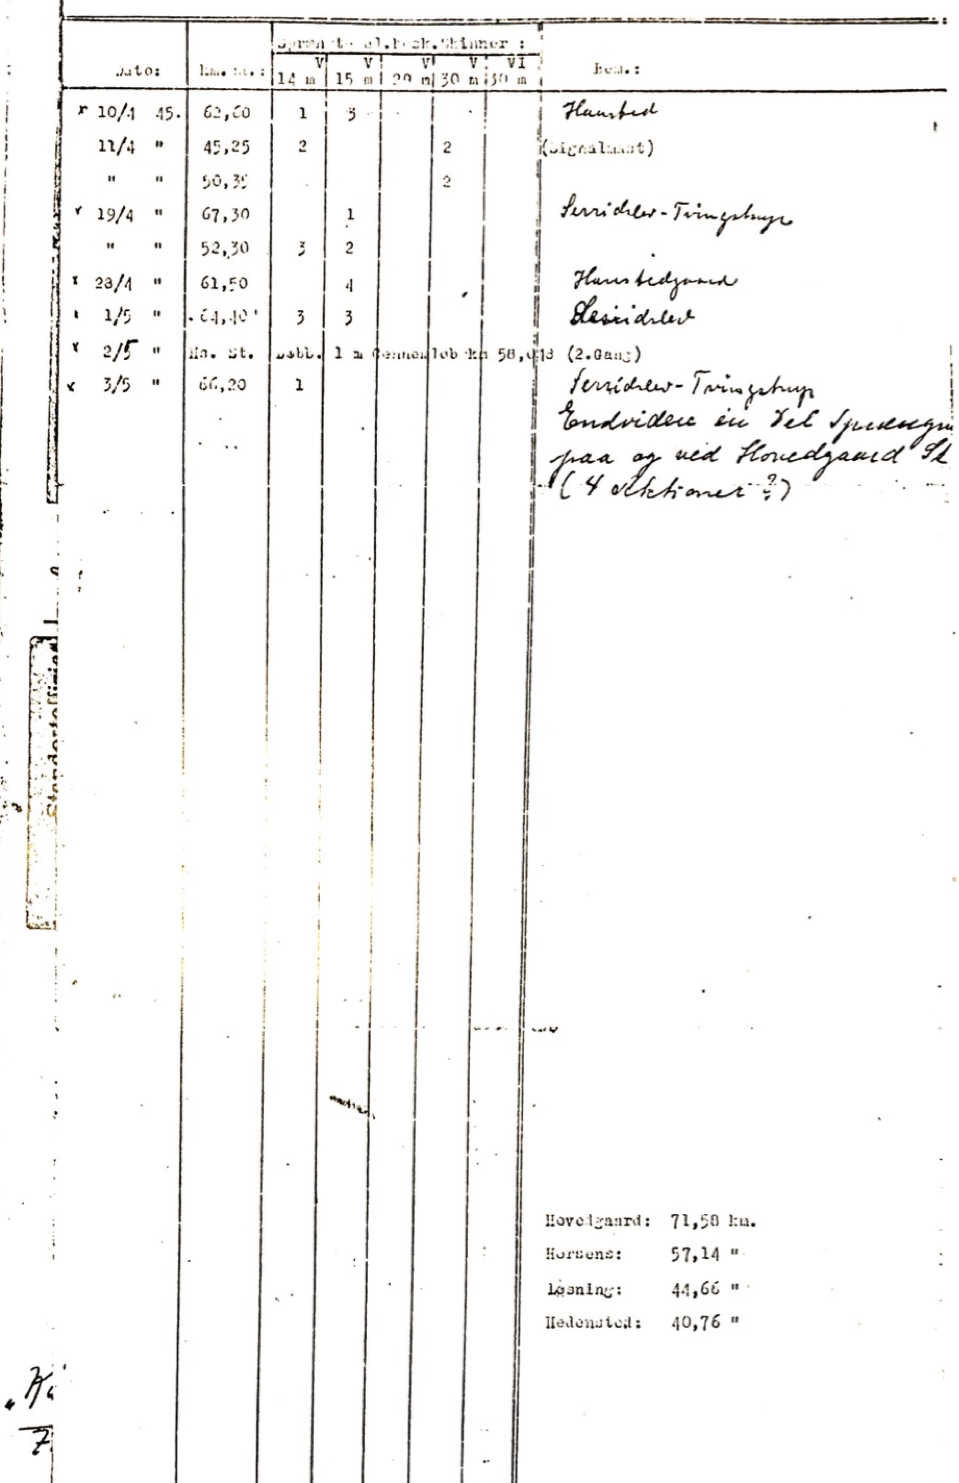 Sprængte el. besk. Skinner :
Dato: Km. St.: V 14 m V 15 m V 29 m V 30 m VI 30 m Bem.:
x 10/4 45. 62,60 1 3 Hansted
11/4 " 45,25 2 2 (Signalmast)
" " 50,35 2
x 19/4 " 67,30 1 Serridslev-Tvingstrup
" " 52,30 3 2
x 28/4 " 61,50 4 Hanstedgaard
x 1/5 " 64,40 3 3 Serridslev
x 2/5 " Hs. St. Dobb. 1 m Gennemløb km 58,048 (2.Gang)
x 3/5 " 66,20 1 Serridslev-Tvingstrup
Endvidere en Del
paa og ved Hovedgaard St
(4 Aktioner ?)
Standortoffizier
Hovedgaard: 71,58 km.
Horsens: 57,14 "
Løsning: 44,66 "
Hedensted: 40,76 "
7